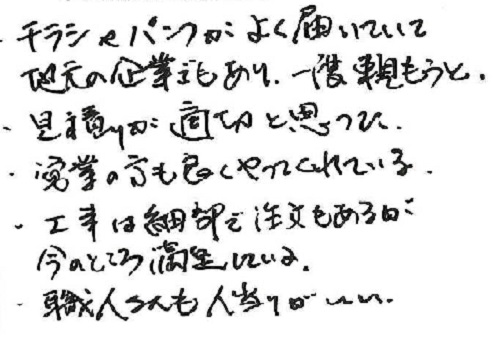 ・チラシやパンフがよく届いていて
地元の企業でもあり、一度頼もうと。
・見積りが適切と思った。
・営業の方も良くやってくれている。
・工事は細部で注文もあるが
今のところ満足している。
・職人さんも人当りがいい。